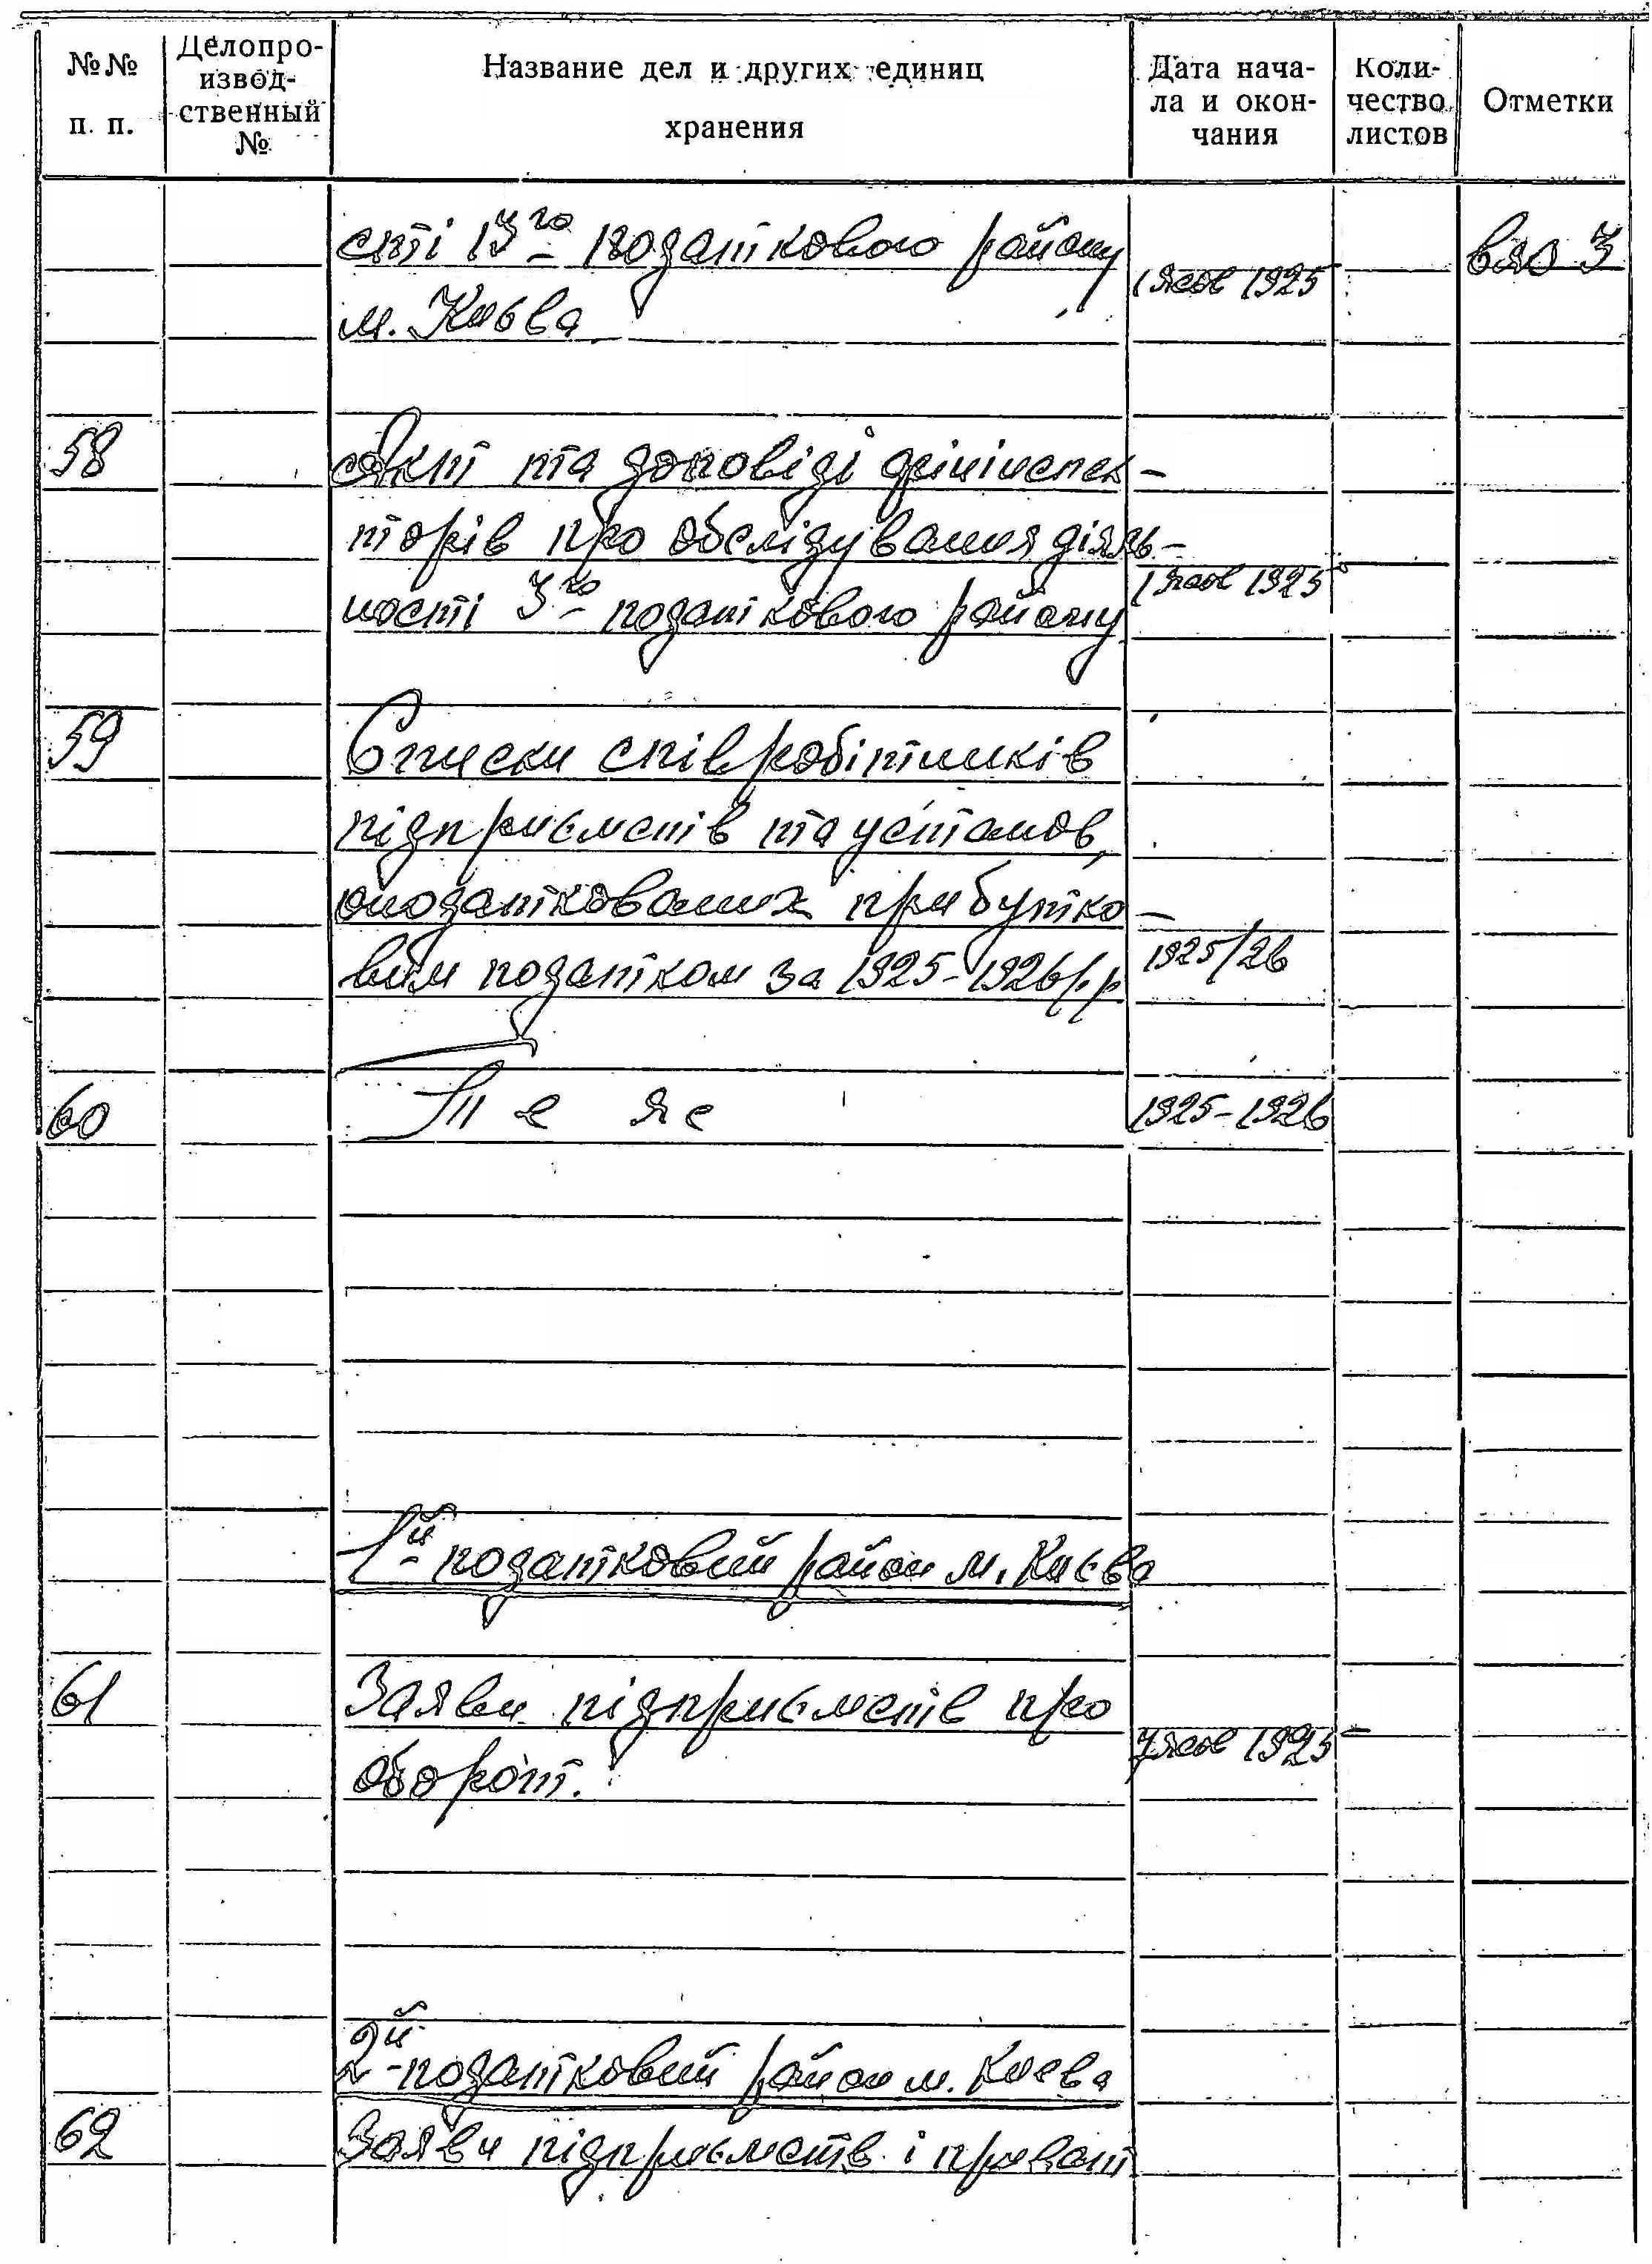 №№ п. п. Делопро-изводственный № Название дел и других единиц хранения Дата начала и окончания Количество листов Отметки
сті 13го податкового району
1925
м. Києва
58 Акти та доповіді фінінспек-
торів про обслідування діяль-
ності 3го податкового району
1925
59 Списки співробітників
підприємств та установ,
оподаткованих прибутко-
вим податком за 1925-1926 р.р
1925/26
60 Те же 1925-1926
1й податковий район м. Києва
61 Заяви підприємств про
1925
оборот.
2й податковий район м. Києва
62 Заяви підприємств і приват